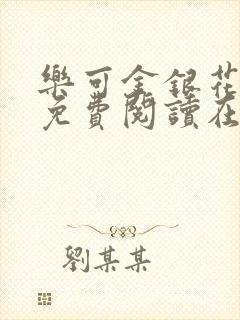 樂可金銀花
免費閱讀在
劉某某